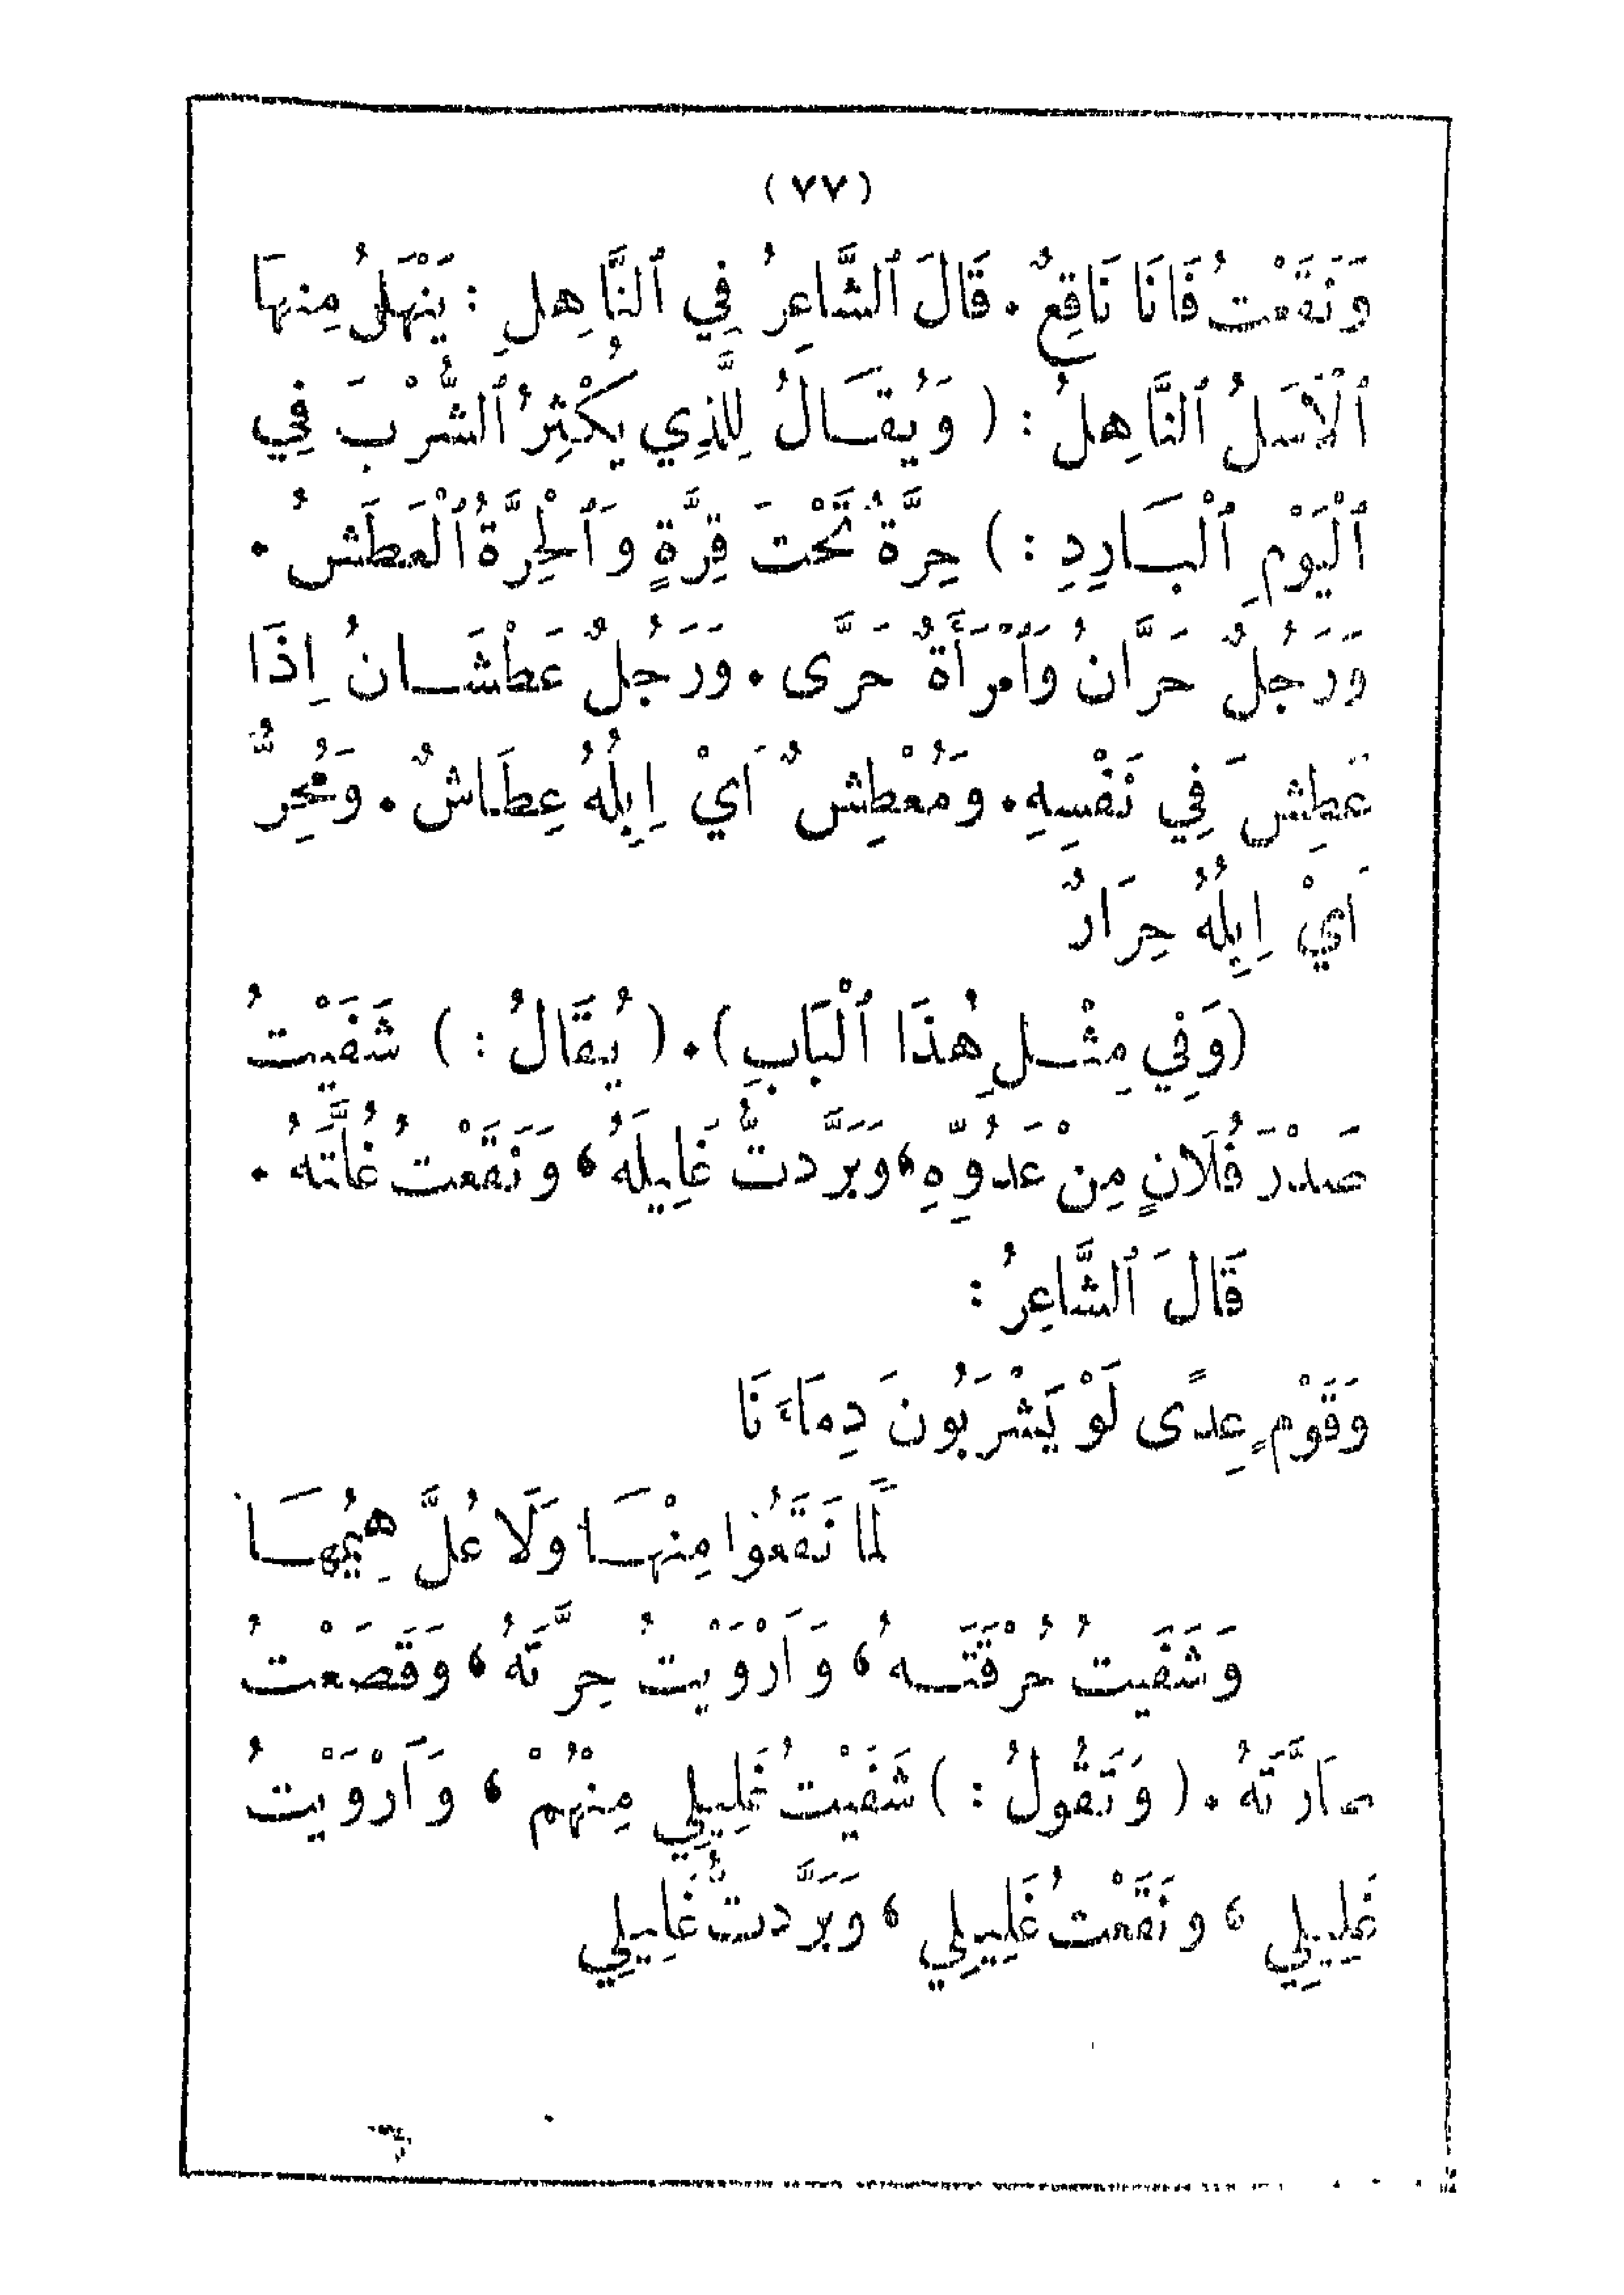 (٧٧)
وَنَقَعْتُ فَاَنَا نَاقِعٌ . قَالَ ٱلشَّاعِرُ فِي ٱلنَّاهِلِ : يَنْهَلُ مِنهَا
ٱلْاَسَلُ ٱلنَّاهِلُ : ( وَيُقَالُ لِلَّذِي يُكْثِرُ ٱلشُّرْبَ فِي
ٱلْيَوْمِ ٱلْبَارِدِ : ) حِرَّةٌ تَحْتَ قِرَّةٍ وَٱلْحِرَّةُ ٱلْعَطَشُ .
وَرَجُلٌ حَرَّانُ وَٱمْرَأَةٌ حَرَّى . وَرَجُلٌ عَطْشَانُ اِذَا
عَطِشَ فِي نَفْسِهِ . وَمُعْطِشٌ اَيْ اِبِلُهُ عِطَاشٌ . وَمُحِرٌّ
اَيْ اِبِلُهُ حِرَارٌ
(وَفِي مِثْلِ هٰذَا ٱلْبَابِ) . ( يُقَالُ : ) شَفَيْتُ
صَدْرَ فُلَانٍ مِنْ عَدُوِّهِ ، وَبَرَّدتُّ غَلِيلَهُ ، وَنَقَعْتُ غُلَّتَهُ .
قَالَ ٱلشَّاعِرُ :
وَقَوْمٍ عِدًى لَوْ يَشْرَبُونَ دِمَاءَنَا
لَمَا نَقَعُوا مِنْهَا وَلَا عُلَّ هِيمُهَا
وَشَفَيتُ حُرْقَتَهُ ، وَاَرْوَيْتُ حِرَّتَهُ ، وَقَصَعْتُ
صَارَّتَهُ . ( وَتَقُولُ : ) شَفَيْتُ غَلِيلِي مِنْهُمْ ، وَاَرْوَيْتُ
غَلِيلِي ، وَنَقَعْتُ غَلِيلِي ، وَبَرَّدتُّ غَلِيلِي